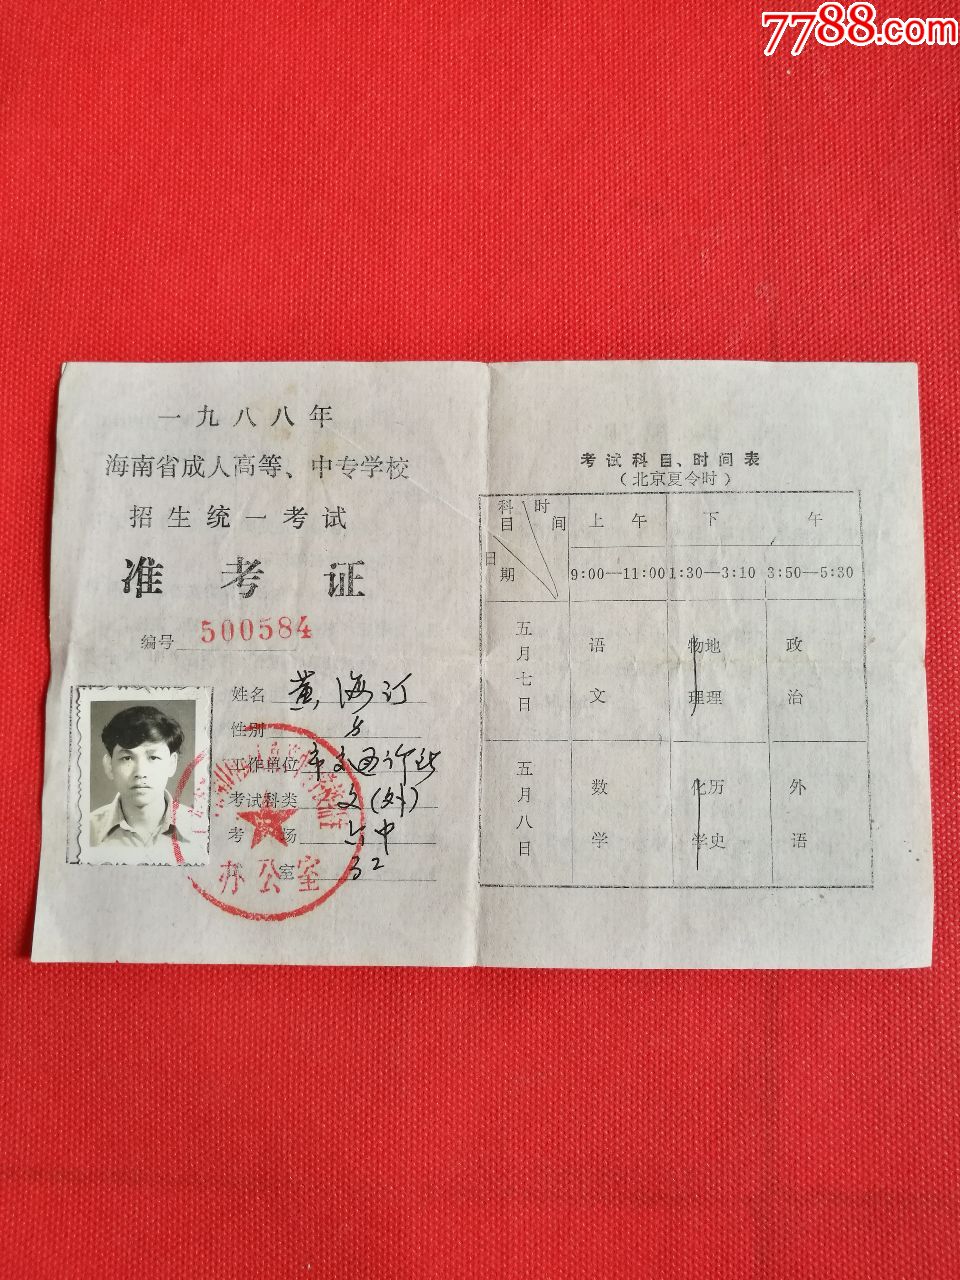 7788.com
一九八八年
海南省成人高等、中专学校
招生统一考试
准考证
编号 500584
姓名 黄海汀
性别
工作单位 市交通
考试科类 文(外)
考场 中
室 32
办公室
考试科目、时间表
(北京夏令时)
科目 时间 日期 上午 下午
9:00—11:00 1:30—3:10 3:50—5:30
五月七日 语文 物理 地理 政治
五月八日 数学 化学 历史 外语